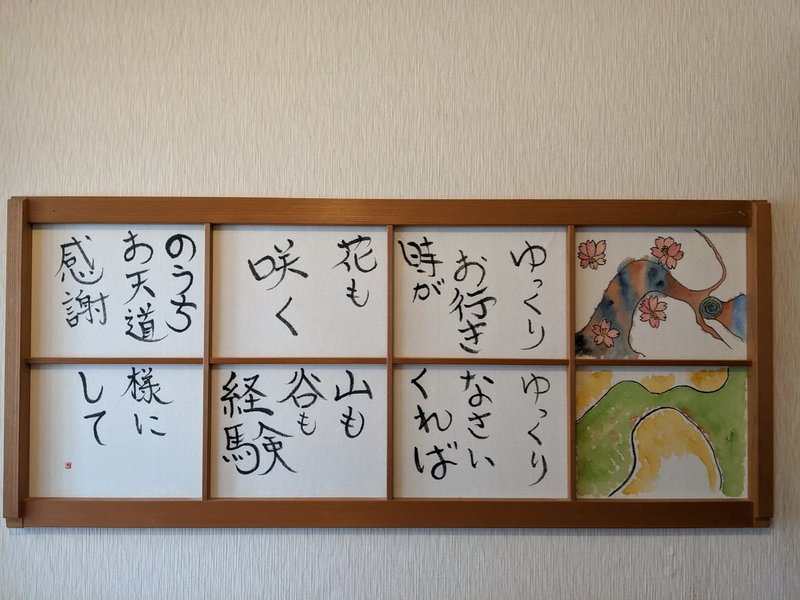 ゆっくりゆっくり
お行きなさい
時がくれば
花も
咲く
山も
谷も
経験
のうち
お天道様に
感謝して